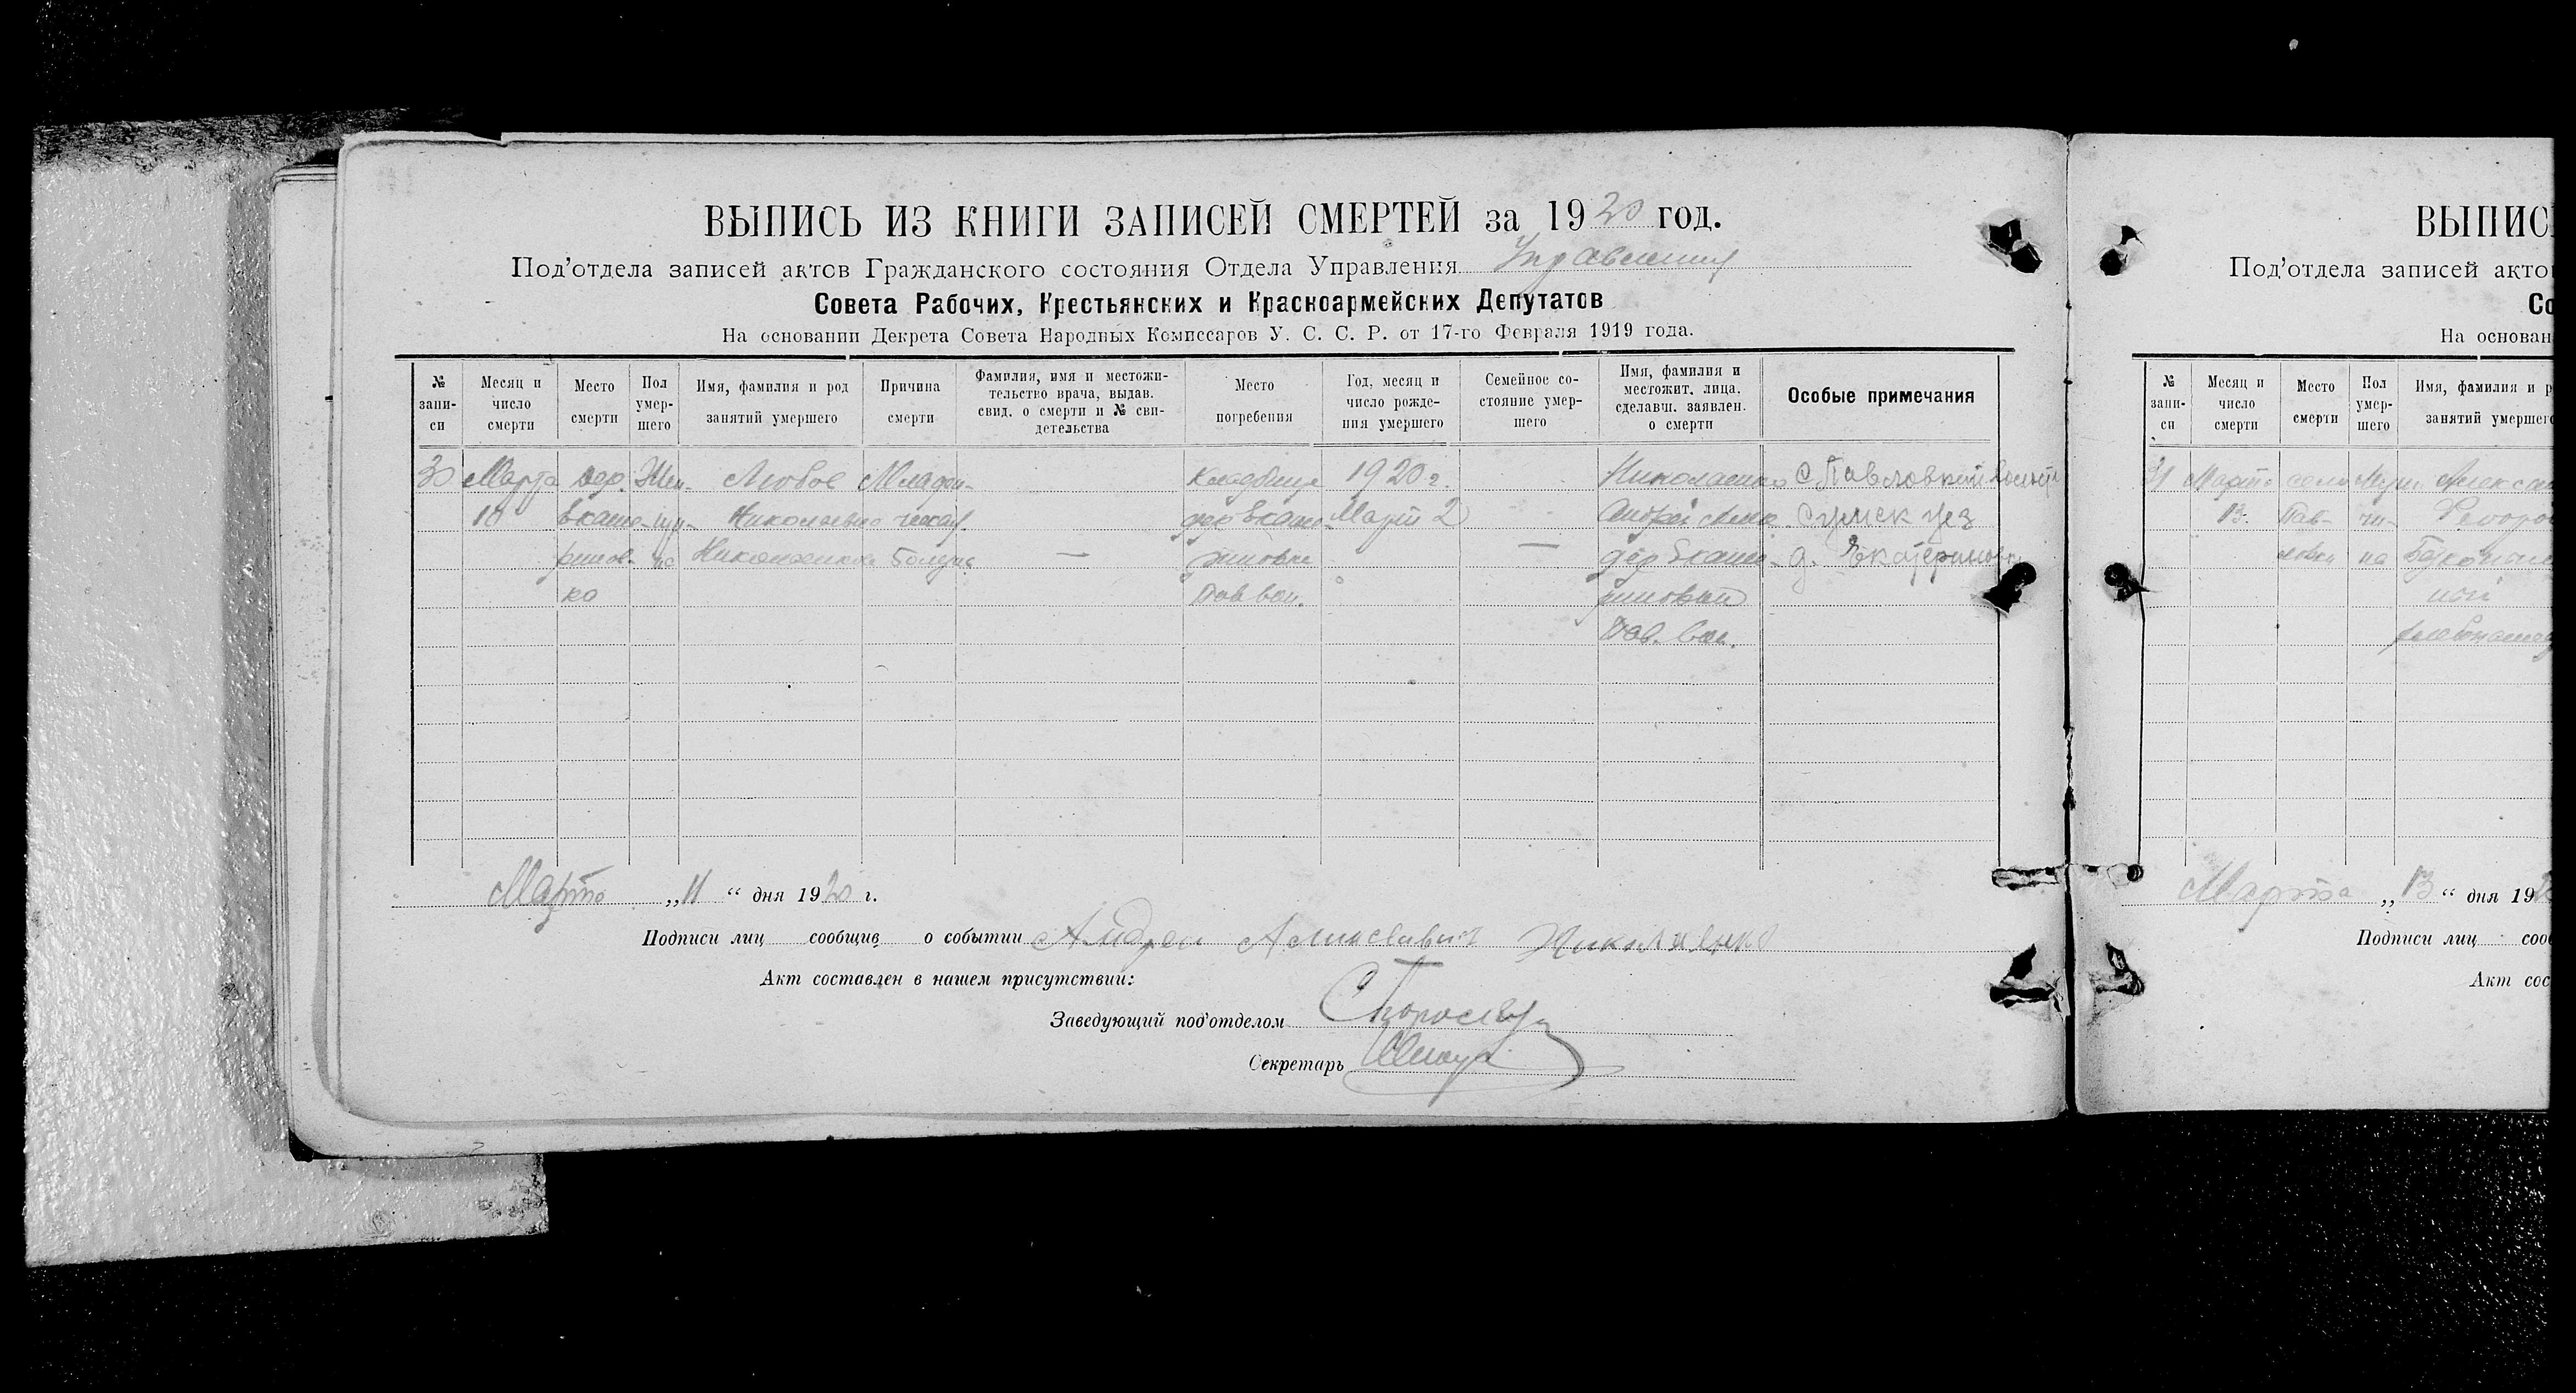 ВЫПИСЬ ИЗ КНИГИ ЗАПИСЕЙ СМЕРТЕЙ за 1920 год.
Под'отдела записей актов Гражданского состояния Отдела Управления Управления
Совета Рабочих, Крестьянских и Красноармейских Депутатов
На основании Декрета Совета Народных Комиссаров У. С. С. Р. от 17-го Февраля 1919 года.
№ запи-
си
Месяц и
число
смерти
Место
смерти
Пол
умер-
шего
Имя, фамилия и род
занятий умершего
Причина
смерти
Фамилия, имя и местожи-
тельство врача, выдав.
свид. о смерти и № сви-
детельства
Место
погребения
Год, месяц и
число рожде-
ния умершего
Семейное со-
стояние умер-
шего
Имя, фамилия и
местожит. лица,
сделавш. заявлен.
о смерти
Особые примечания
30 Марта дер. Жен- Младен- Кладбище 1920 г. Николаенко с Павловкой
10 Екате- щи- Николаевна ческая дер Екате- Март 2 Андрей Сумск уез
ринов- на Николаенкова болезнь риновки дер Екате- д. Екатериновка
ка Пав вол. риновки
Пав. вол.
Марта „11“ дня 1920 г.
Подписи лиц сообщив о событии Андрей Николаенко
Акт составлен в нашем присутствии:
Заведующий под'отделом
Секретарь
ВЫПИС
Под'отдела записей акто
Со
На основан
№
запи-
си
Месяц и
число
смерти
Место
смерти
Пол
умер-
шего
Имя, фамилия и р
занятий умершего
31 Марта село Муж Алексан
13. Пав- чи- Федоро
ловка на
ной
Марта „13“ дня 192
Подписи лиц сооб
Акт сос